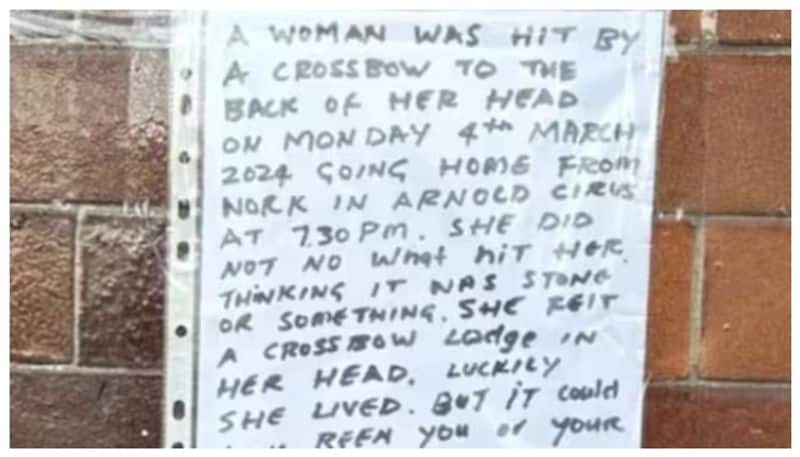 A WOMAN WAS HIT BY
A CROSSBOW TO THE
BACK OF HER HEAD
ON MONDAY 4th MARCH
2024 GOING HOME FROM
WORK IN ARNOLD CIRUS
AT 7.30 PM. SHE DID
NOT NO What hiT HER.
THINKING IT WAS STONE
OR SOMETHING. SHE FElT
A CROSSBOW Lodge IN
HER HEAD. LUCKILY
SHE LIVED. BUT iT could
BEEN YOU or YOUR